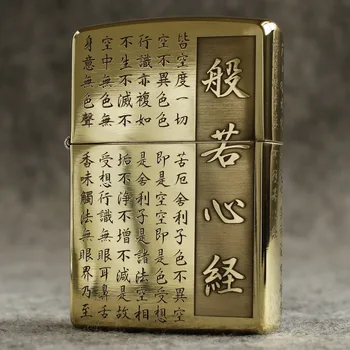 般若心経
皆空度一切苦厄舍利子色不異空
空不異色色即是空空即是色受想
行識亦複如是舍利子是諸法空相
不生不滅不垢不淨不增不減是故
空中無色無受想行識無眼耳鼻舌
身意無色聲香味觸法無眼界乃至